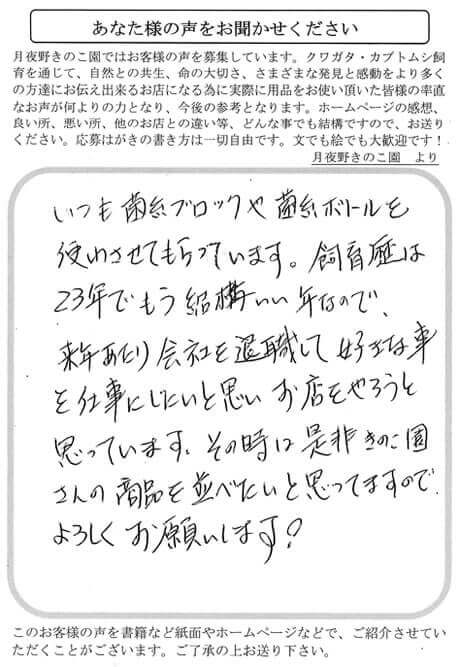 あなた様の声をお聞かせください
月夜野きのこ園ではお客様の声を募集しています。クワガタ・カブトムシ飼
育を通じて、自然との共生、命の大切さ、さまざまな発見と感動をより多く
の方達にお伝え出来るお店になる為に実際に用品をお使い頂いた皆様の率直
なお声が何よりの力となり、今後の参考となります。ホームページの感想、
良い所、悪い所、他のお店との違い等、どんな事でも結構ですので、お送り
ください。応募はがきの書き方は一切自由です。文でも絵でも大歓迎です！
月夜野きのこ園　より
いつも菌糸ブロックや菌糸ボトルを
使わさせてもらっています。飼育歴は
23年でもう結構いい年なので、
来年あたり会社を退職して好きな事
を仕事にしたいと思いお店をやろうと
思っています、その時は是非きのこ園
さんの商品を並べたいと思ってますので、
よろしくお願いします！
このお客様の声を書籍など紙面やホームページなどで、ご紹介させてい
ただくことがございます。ご了承の上お送り下さい。